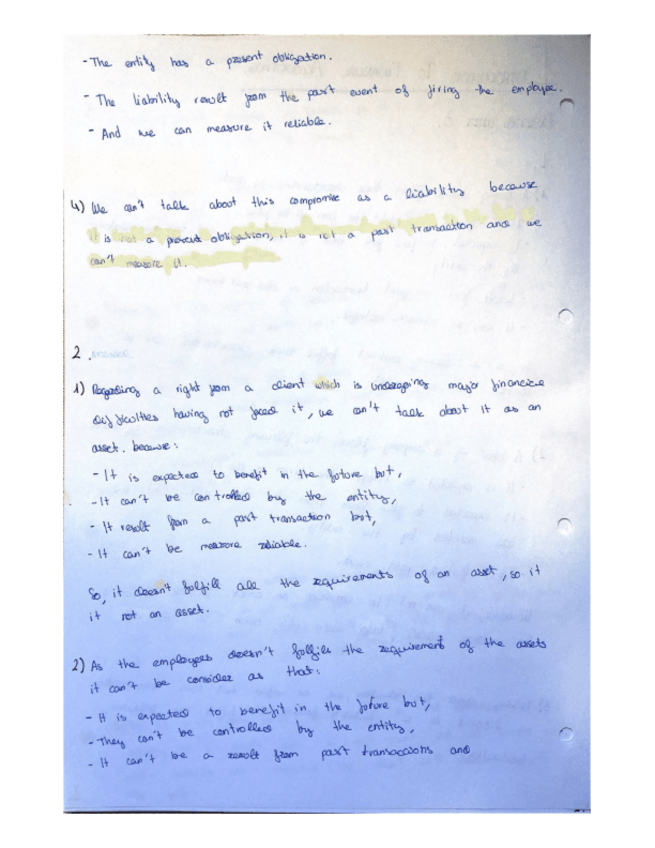 - The entity has a present obligation.
- The liability result from the past event of firing the employee.
- And we can measure it reliable.
4) We can't talk about this compromise as a liability because
it is not a present obligation, it is not a past transaction and we
can't measure it.
2. answer
1) Regarding a right from a client which is undergoing major financial
difficulties having not faced it, we can't talk about it as an
asset. because:
- It is expected to benefit in the future but,
- It can't be controlled by the entity,
- It result from a past transaction but,
- It can't be measure reliable.
So, it doesn't fulfill all the requirements of an asset, so it
it not an asset.
2) As the employees doesn't fulfill the requirement of the assets
it can't be consider as that:
- It is expected to benefit in the future but,
- They can't be controlled by the entity,
- It can't be a result from past transactions and